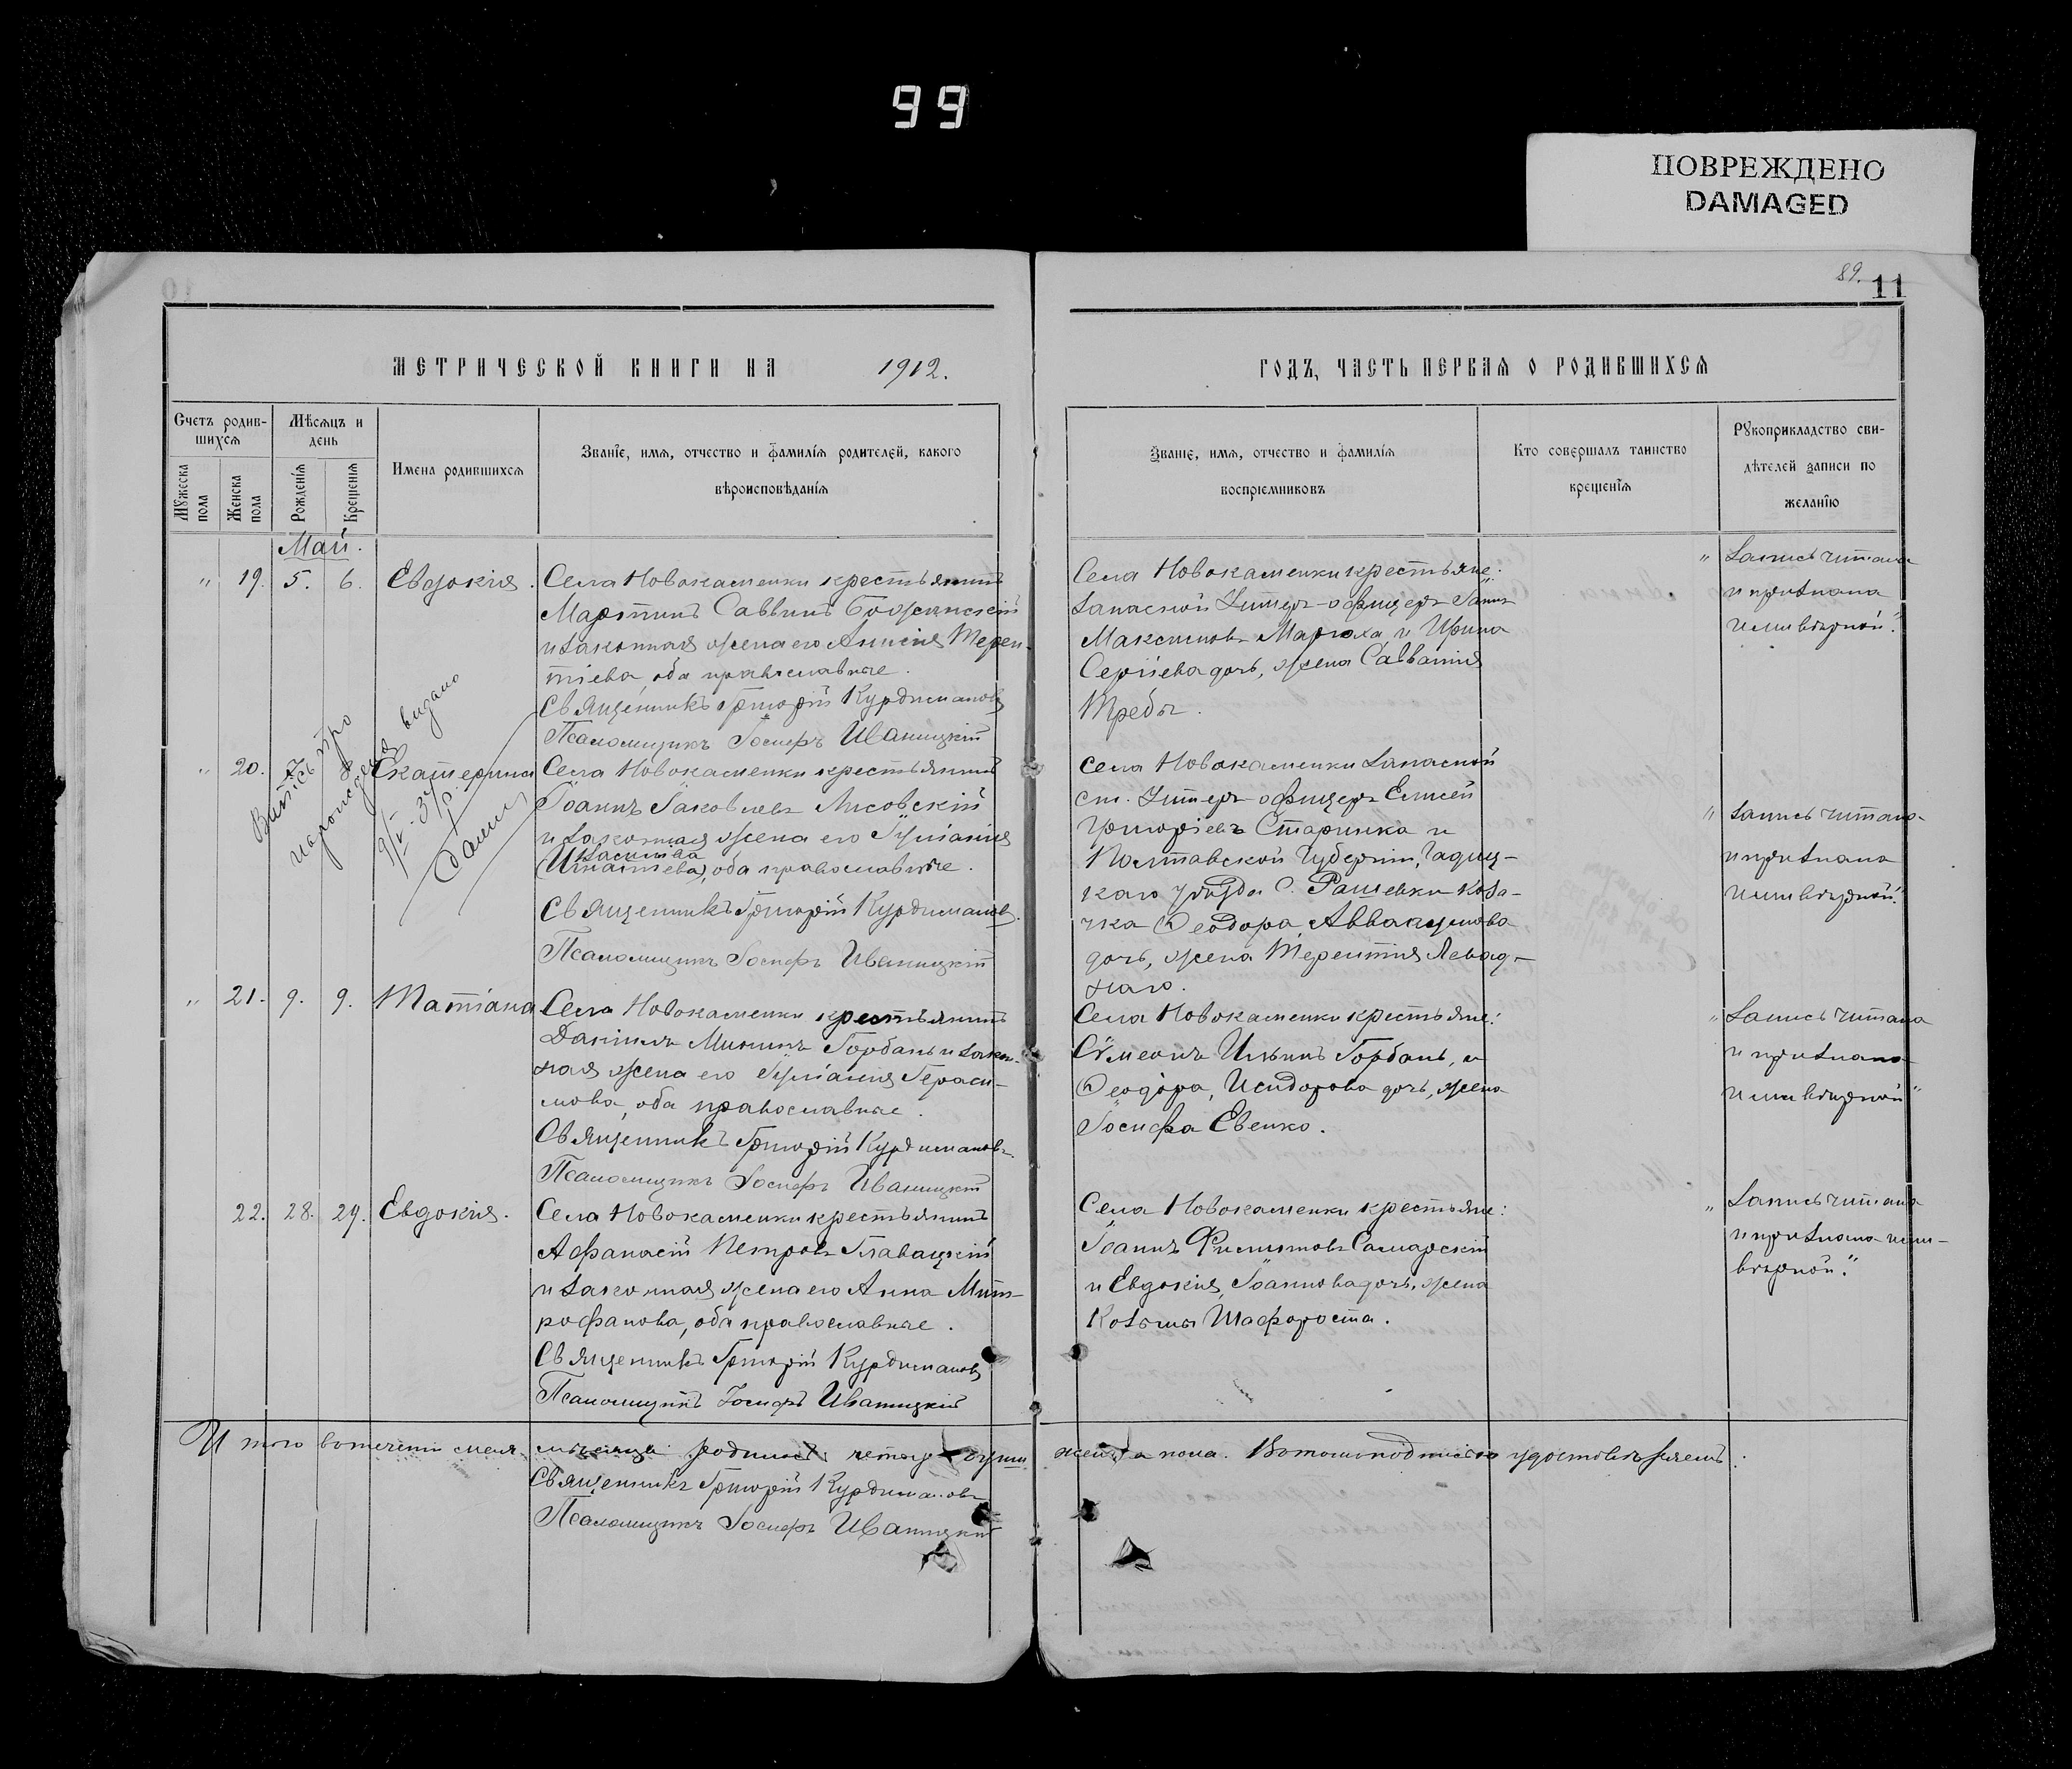 99
ПОВРЕЖДЕНО
DAMAGED
89.
11
МЕТРИЧЕСКОЙ КНИГИ НА 1912.
Счетъ родив-
шихся
Мѣсяцъ и
день
Мужеска
пола
Женска
пола
Рожденія
Крещенія
Имена родившихся
Званіе, имя, отчество и фамилія родителей, какого
вѣроисповѣданія
Май.
" 19. 5. 6. Евдокія.
Села Новокаменки крестьянинъ
Мартинъ Саввинъ
и законная жена его Анисія Терен-
тіева, оба православные.
Священникъ Григорій Курдимановъ
Псаломщикъ Іосифъ Иваницкій
" 20. 7. 8. Екатерина
Села Новокаменки крестьянинъ
Іоаннъ Іаковлевъ Лисовскій
и законная жена его Іуліанія
(Игнатіева), оба православные.
Священникъ Григорій Курдимановъ.
Псаломщикъ Іосифъ Иваницкій
Витяг про
народження видано
9/V-37 р.
" 21. 9. 9. Татіана
Села Новокаменки крестьянинъ
Даніилъ Мининъ Горбань и закон-
ная жена его Іуліанія Гераси-
мова, оба православные.
Священникъ Григорій Курдимановъ.
Псаломщикъ Іосифъ Иваницкій
22. 28. 29. Евдокія.
Села Новокаменки крестьянинъ
Афанасій Петровъ Главацкій
и законная жена его Анна Мит-
рофанова, оба православные.
Священникъ Григорій Курдимановъ
Псаломщикъ Іосифъ Иваницкій
Итого въ теченіи мая мѣсяца родилось четыре души
Священникъ Григорій Курдимановъ
Псаломщикъ Іосифъ Иваницкій
ГОДЪ, ЧАСТЬ ПЕРВАЯ О РОДИВШИХСЯ
Званіе, имя, отчество и фамилія
воспріемниковъ
Кто совершалъ таинство
крещенія
Рукоприкладство сви-
дѣтелей записи по
желанію
Села Новокаменки крестьяне:
Запасной Унтеръ-офицеръ Іаннъ
Максимовъ и Ирина
Сергіева дочь, жена Савватія
Требы.
" Запись читана
и признана
ими вѣрной."
села Новокаменки Запасной
ст. Унтеръ-офицеръ Елисей
Григоріевъ Старинка и
Полтавской Губерніи, Гадяц-
каго уѣзда с. Рашевки каза-
чка Ѳеодора Аввакумова
дочь, жена Терентія Левад-
наго.
" Запись читана
и признана
ими вѣрной."
Села Новокаменки крестьяне:
Сѵмеонъ Ильинъ Горбань, и
Ѳеодора, Исидорова дочь, жена
Іосифа Евенко.
" Запись читана
и признана
ими вѣрной"
Села Новокаменки крестьяне:
Іоаннъ Филиповъ Самарскій
и Евдокія, Іоаннова дочь, жена
Козьмы Шафороста.
" Запись читана
и признана ими
вѣрной."
женска пола. Въ томъ подписью удостовѣряемъ: